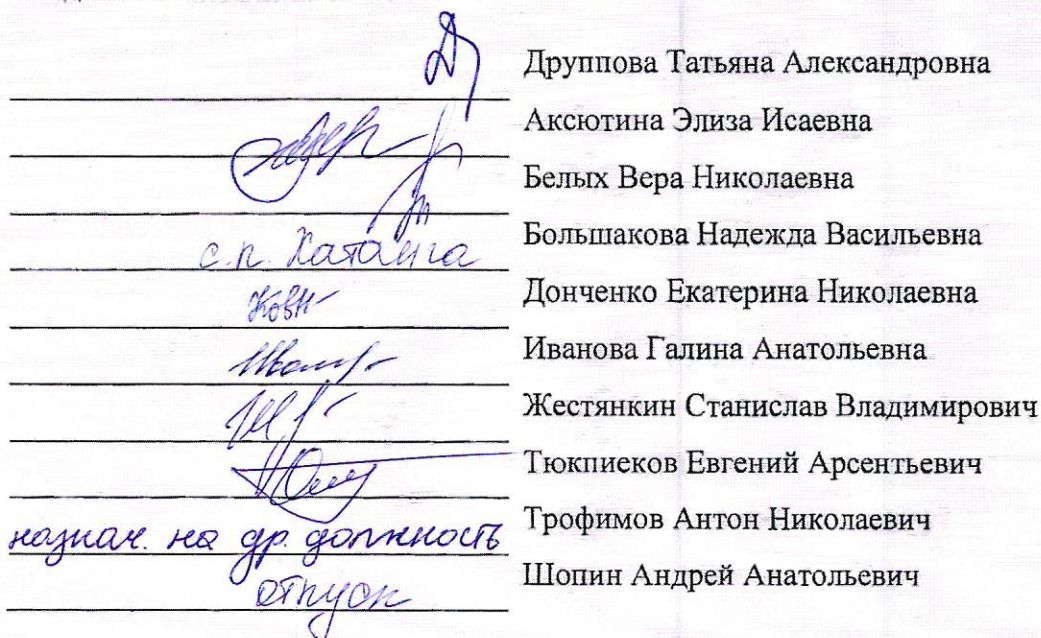 Друппова Татьяна Александровна
Аксютина Элиза Исаевна
Белых Вера Николаевна
с.п. Хатанга Большакова Надежда Васильевна
Донченко Екатерина Николаевна
Иванова Галина Анатольевна
Жестянкин Станислав Владимирович
Тюкпиеков Евгений Арсентьевич
назнач. на др. должность Трофимов Антон Николаевич
отпуск Шопин Андрей Анатольевич